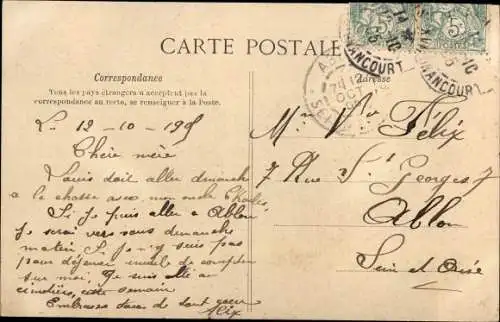 CARTE POSTALE
Correspondance
Tous les pays étrangers n'acceptent pas la
correspondance au recto, se renseigner à la Poste.
Adresse
L. 12-10-1905
Chère mère
Louis doit aller dimanche
a la chasse avec mon oncle Charles,
Si je puis aller a Ablon
je serai vers sans dimanche
matin Si je n'y suis pas
pour déjeuner inutile de compter
sur moi. Je suis allé au
cimetière, cette semaine
Embrasse de tout coeur
Alix
Mme Vve Félix
7 Rue St Georges 7
Ablon
Seine et Oise
OCT
5c